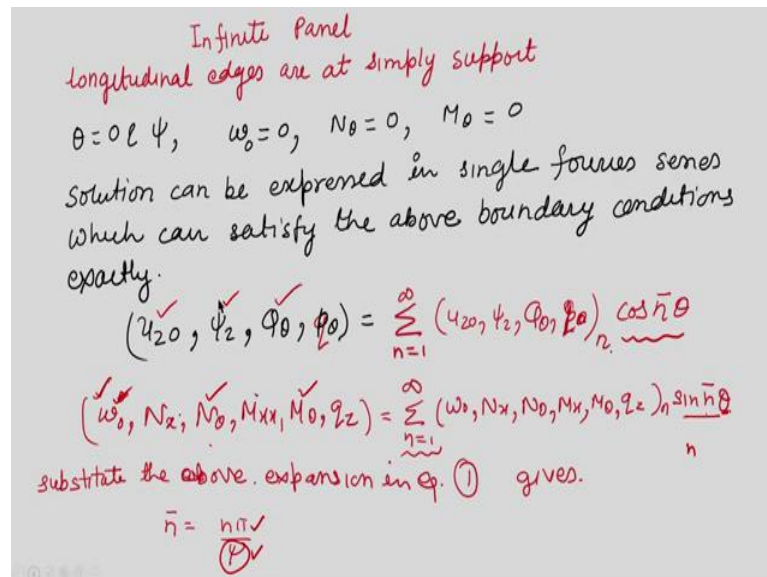 Infinite Panel
longitudinal edges are at simply support
θ = 0 & ψ, w₀ = 0, Nθ = 0, Mθ = 0
Solution can be expressed in single fourier series
which can satisfy the above boundary conditions
exactly.
(u₂₀, ψ₂, Qθ, qθ) = ∑ₙ₌₁^∞ (u₂₀, ψ₂, Qθ, qθ)ₙ cos n̄θ
(w₀, Nₓ, Nθ, Mₓₓ, Mθ, q_z) = ∑ₙ₌₁^∞ (w₀, Nₓ, Nθ, Mₓ, Mθ, q_z)ₙ sin n̄θ
n
substitute the above. expansion in eq. ① gives.
n̄ = nπ/ψ